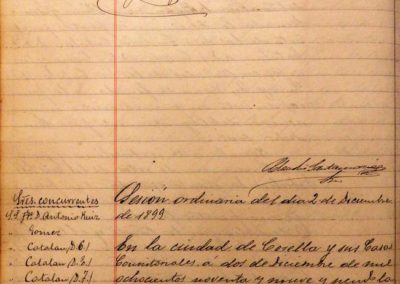 Sres. concurrentes
D. Antonio Ruiz
Gomez
Catalan, D. E.
Catalan, D. E.
Catalan, D. J.
Sesión ordinaria del dia 2 de Diciembre
de 1899
En la ciudad de Corella y sus Casas
Consistoriales, á dos de Diciembre de mil
ochocientos noventa y nueve y